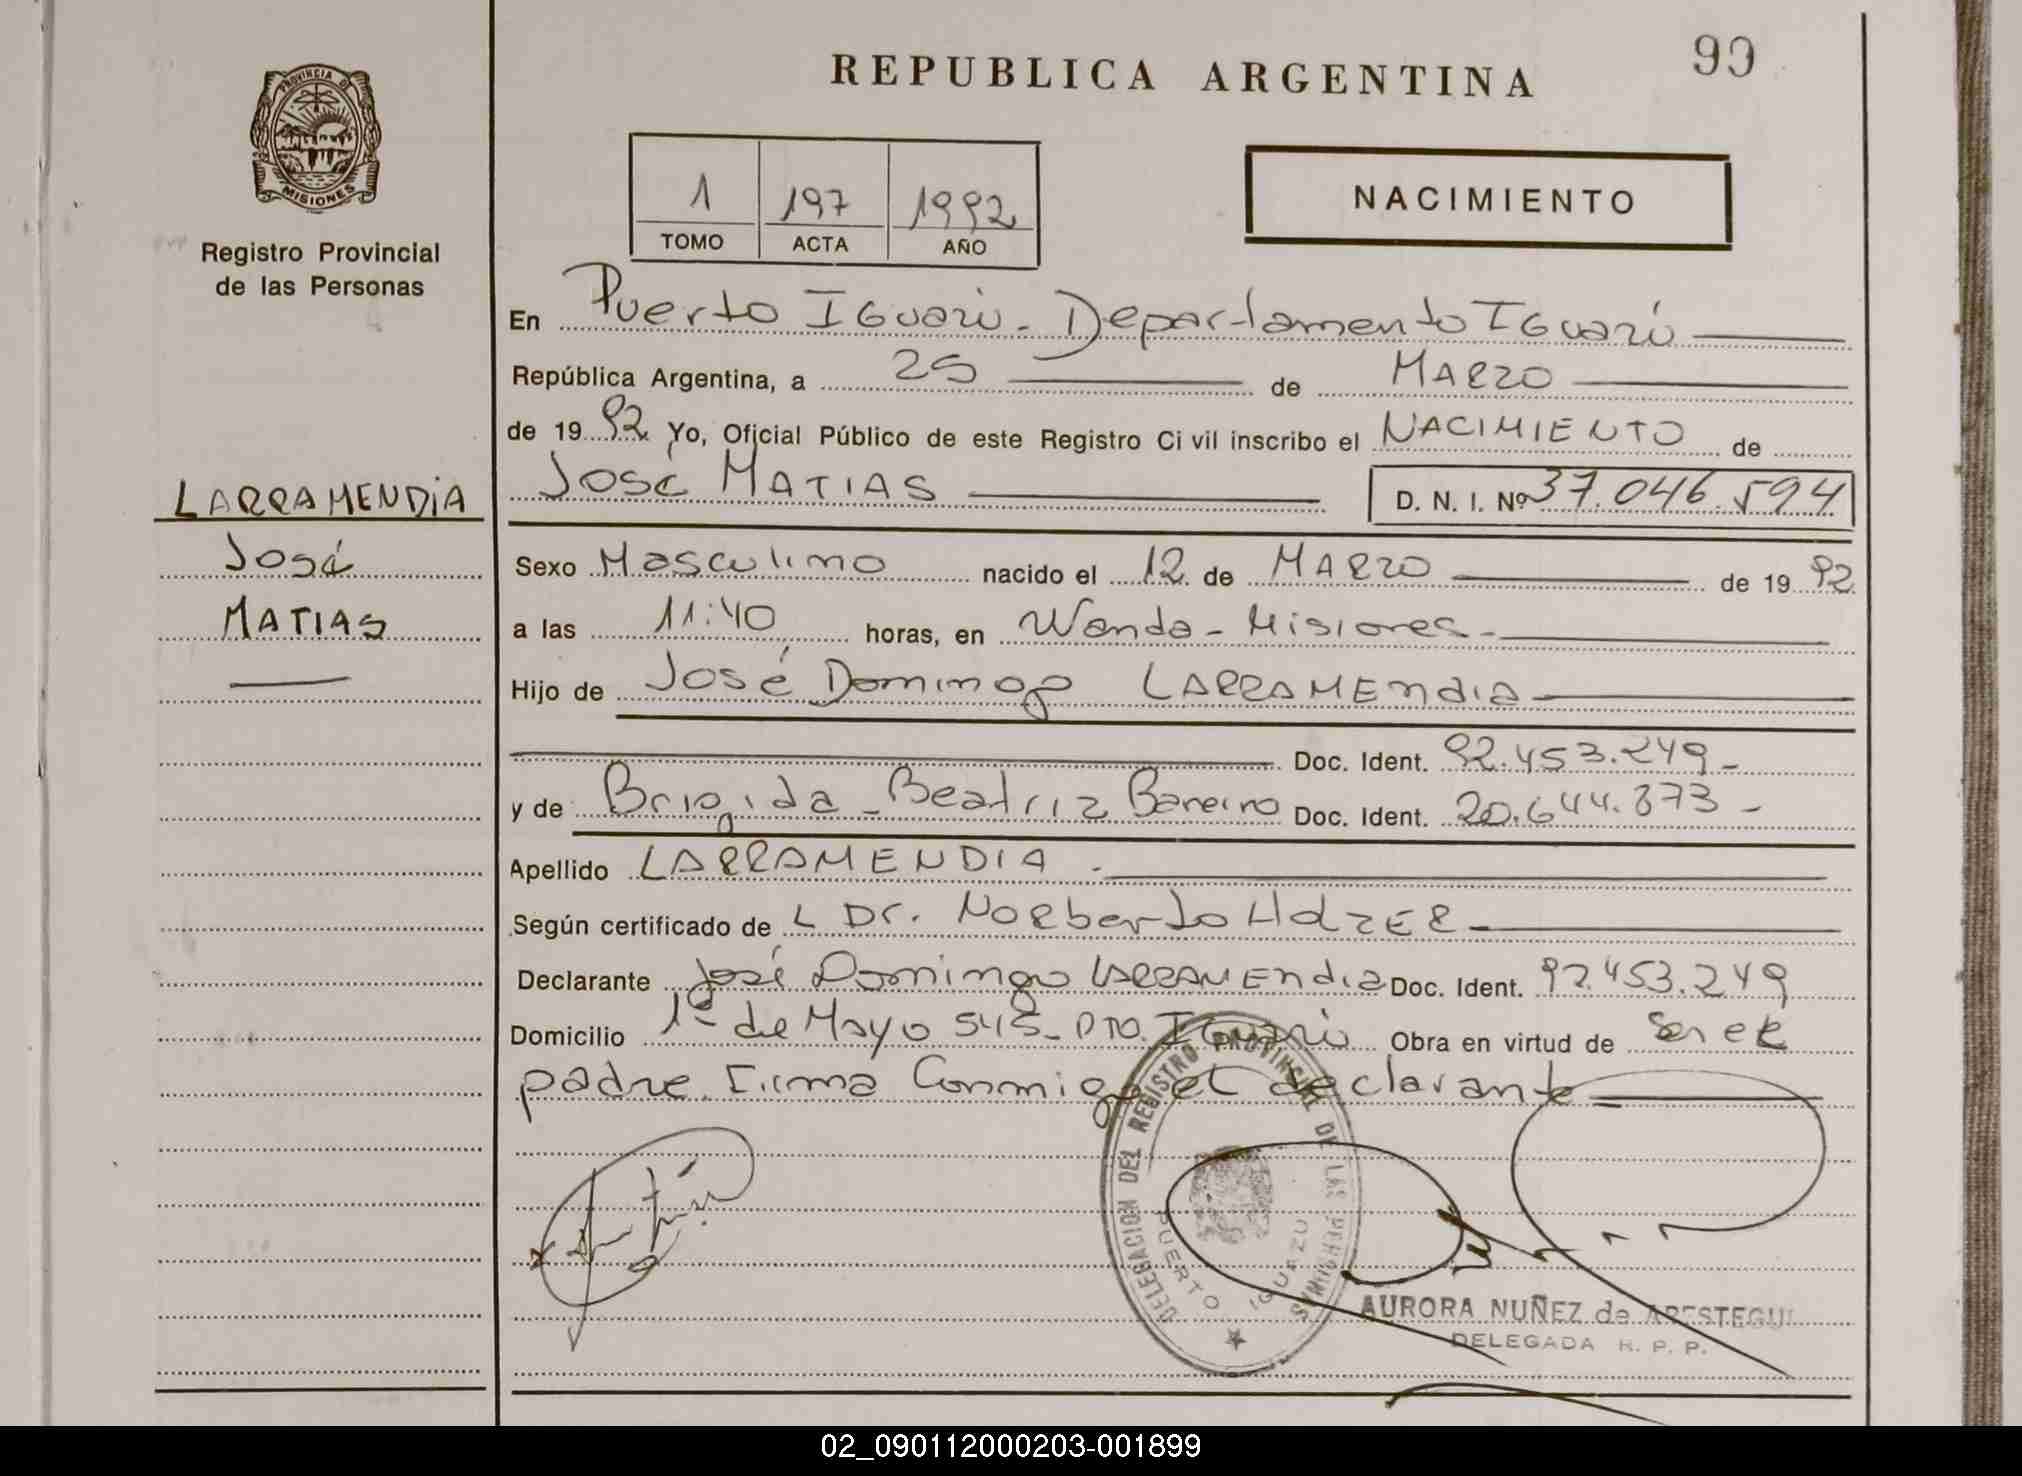 REPUBLICA ARGENTINA
99
PROVINCIA DE
MISIONES
Registro Provincial
de las Personas
1 197 1992
TOMO ACTA AÑO
NACIMIENTO
En Puerto Iguazú - Departamento Iguazú
República Argentina, a 25 de MARZO
de 1992 Yo, Oficial Público de este Registro Civil inscribo el NACIMIENTO de
José MATIAS D. N. I. Nº 37.046.594
LARRAMENDIA
José
MATIAS
Sexo Masculino nacido el 12 de MARZO de 1992
a las 11:40 horas, en Wanda - Misiones -
Hijo de José Domingo LARRAMENDIA
Doc. Ident. 92.453.249 -
y de Brigida - Beatriz Bareiro Doc. Ident. 20.644.873 -
Apellido LARRAMENDIA -
Según certificado de L Dr. Norberto HOLZER -
Declarante José Domingo LARRAMENDIA Doc. Ident. 92.453.249
Domicilio 1º de Mayo 545 - Pto. Iguazú Obra en virtud de ser el
padre. Firma Conmigo el declarante
DELEGACION DEL REGISTRO PROVINCIAL DE LAS PERSONAS
PUERTO IGUAZU
AURORA NUÑEZ de ARESTEGUI
DELEGADA R. P. P.
02_090112000203-001899